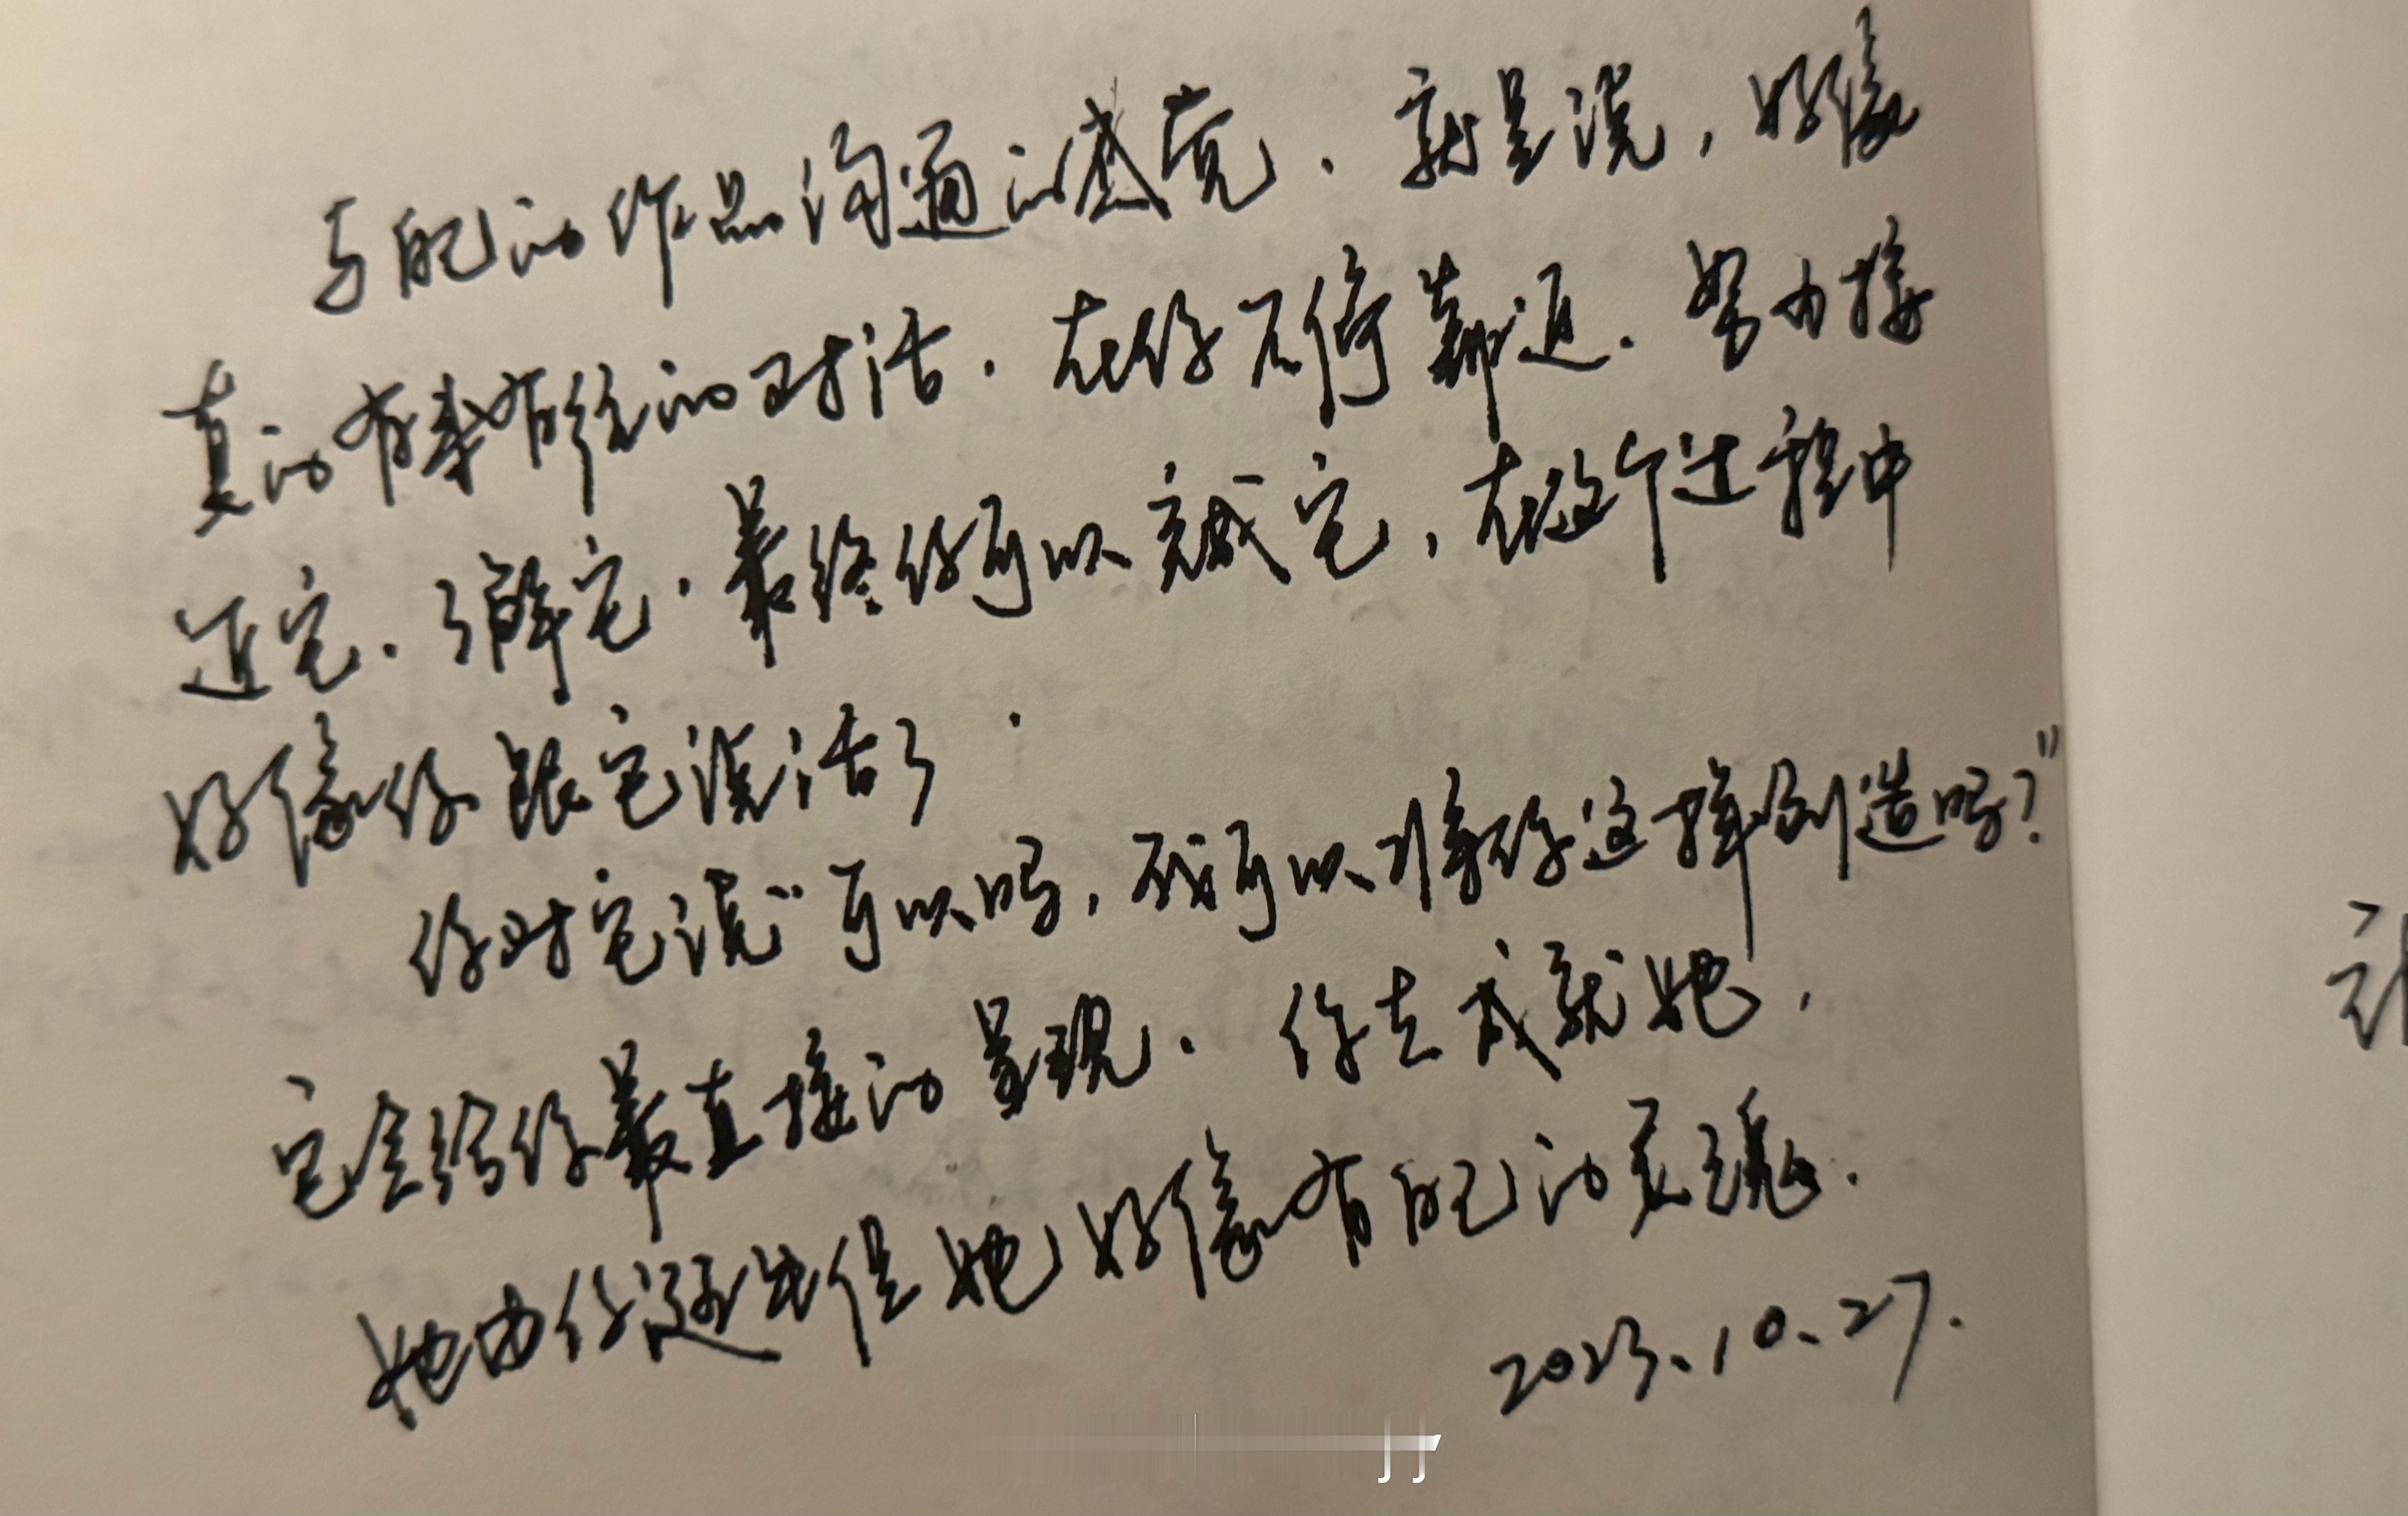 与自己的作品沟通的感觉．就是说，好像
真的有来有往的对话．在你不停靠近．努力接
近它．了解它．最终你可以完成它，在这个过程中
好像你跟它说话了．
你对它说“可以吗，我可以将你这样创造吗？”
它会给你最直接的呈现．你去成就她，
她由你 但她好像有自己的灵魂．
2023.10.27.